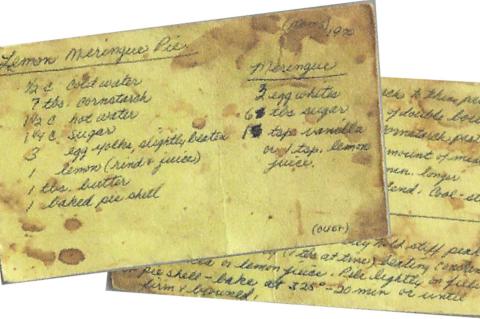 Lemon Meringue Pie
(Mom's) 1970
1/2 c. cold water
7 tbs. cornstarch
1 1/2 c. hot water
1 1/4 c. sugar
3 egg yolks, slightly beaten
1 lemon (rind & juice)
1 tbs. butter
1 baked pie shell
Meringue
3 egg whites
6 tbs sugar
1 tsp vanilla
or 1 tsp. lemon
juice.
(over)
to thin
of double boi
cornstarch
mount of
min. longer
Cool - st
hold stiff peak
(1 tbs at time) beating
or lemon juice. Pile lightly on
pie shell - bake at 325° - 20 min or until
firm & browned.